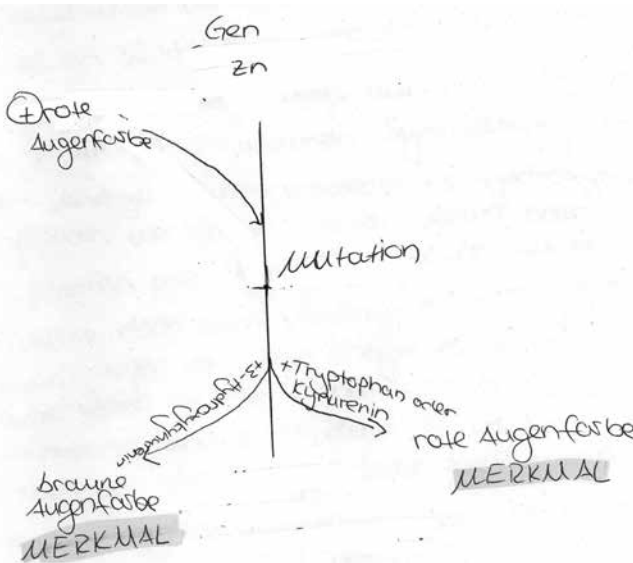 Gen
Zn
+ rote
Augenfarbe
Mutation
+3-Hydroxykynurenin
+Tryptophan oder
Kynurenin
rote Augenfarbe
MERKMAL
braune
Augenfarbe
MERKMAL